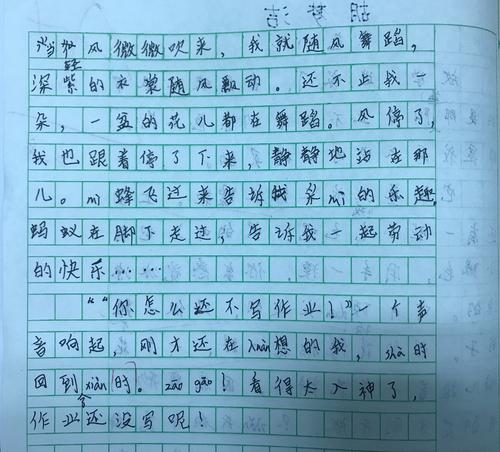 当轻风微微吹来，我就随风舞蹈，
深紫的衣裳随风飘动。还不止我一
朵，一盆的花儿都在舞蹈。风停了，
我也跟着停了下来，静静地站在那
儿。mì蜂飞过来告诉我采mì的乐趣，
蚂蚁在脚下走过，告诉我一起劳动
的快乐……
“你怎么还不写作业！”一个声
音响起，刚才还在huàn想的我，shà时
回到xiàn时。zāo gāo！看得太入神了，
作业还没写呢！